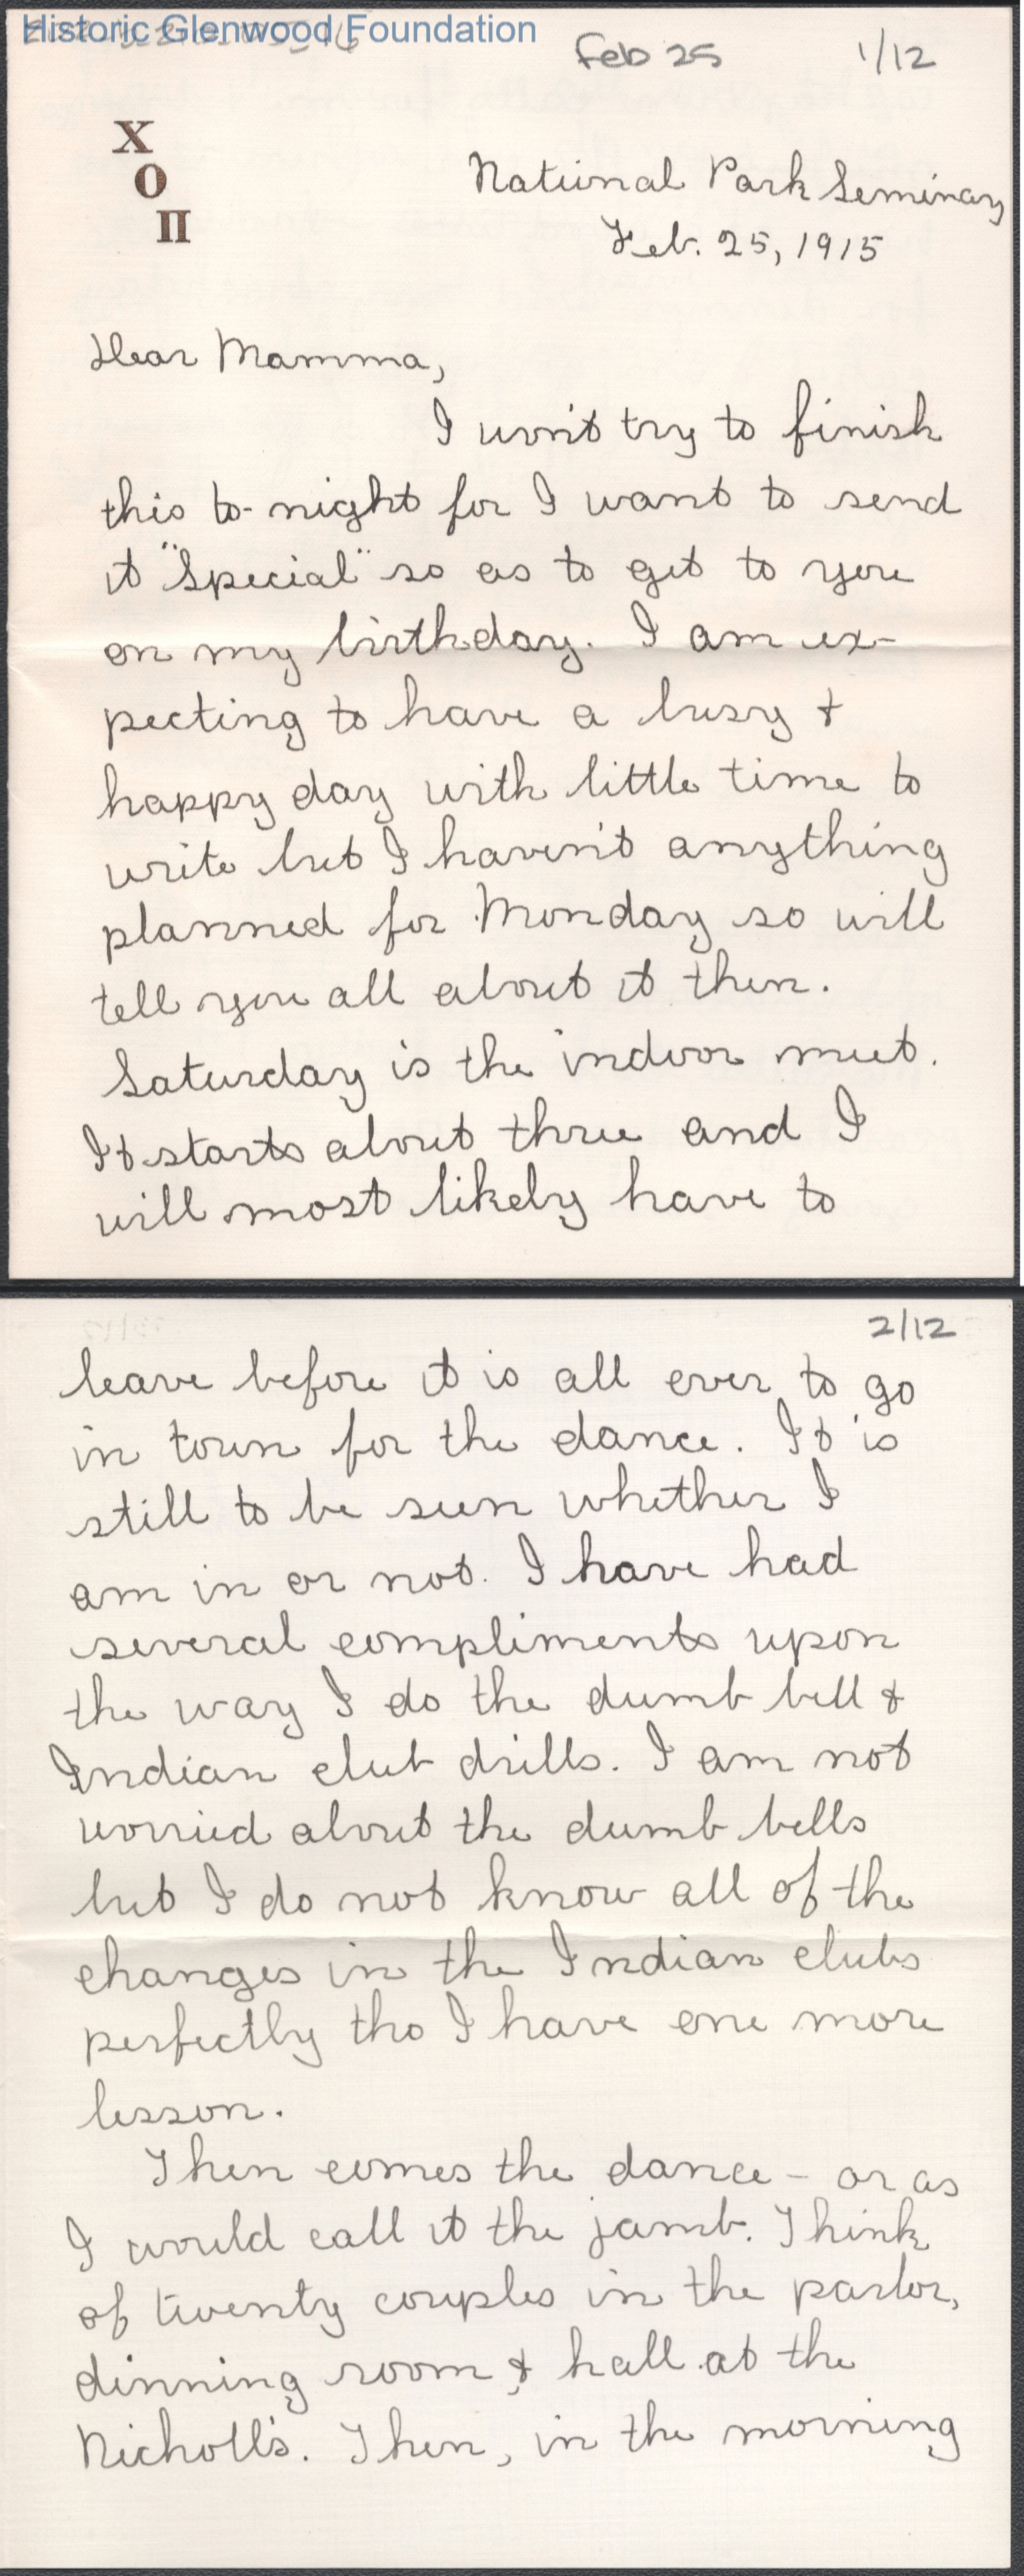 Historic Glenwood Foundation
Feb 25 1/12
X
O
Π
National Park Seminary
Feb. 25, 1915
Dear Mamma,
I won't try to finish
this to-night for I want to send
it "Special" so as to get to you
on my birthday. I am ex-
pecting to have a busy &
happy day with little time to
write but I haven't anything
planned for Monday so will
tell you all about it then.
Saturday is the indoor meet.
It starts about three and I
will most likely have to
2/12
leave before it is all over to go
in town for the dance. It is
still to be seen whether I
am in or not. I have had
several compliments upon
the way I do the dumb bell &
Indian club drills. I am not
worried about the dumb bells
but I do not know all of the
changes in the Indian clubs
perfectly tho I have one more
lesson.
Then comes the dance - or as
I would call it the jamb. Think
of twenty couples in the parlor,
dinning room & hall at the
Nicholl's. Then, in the morning